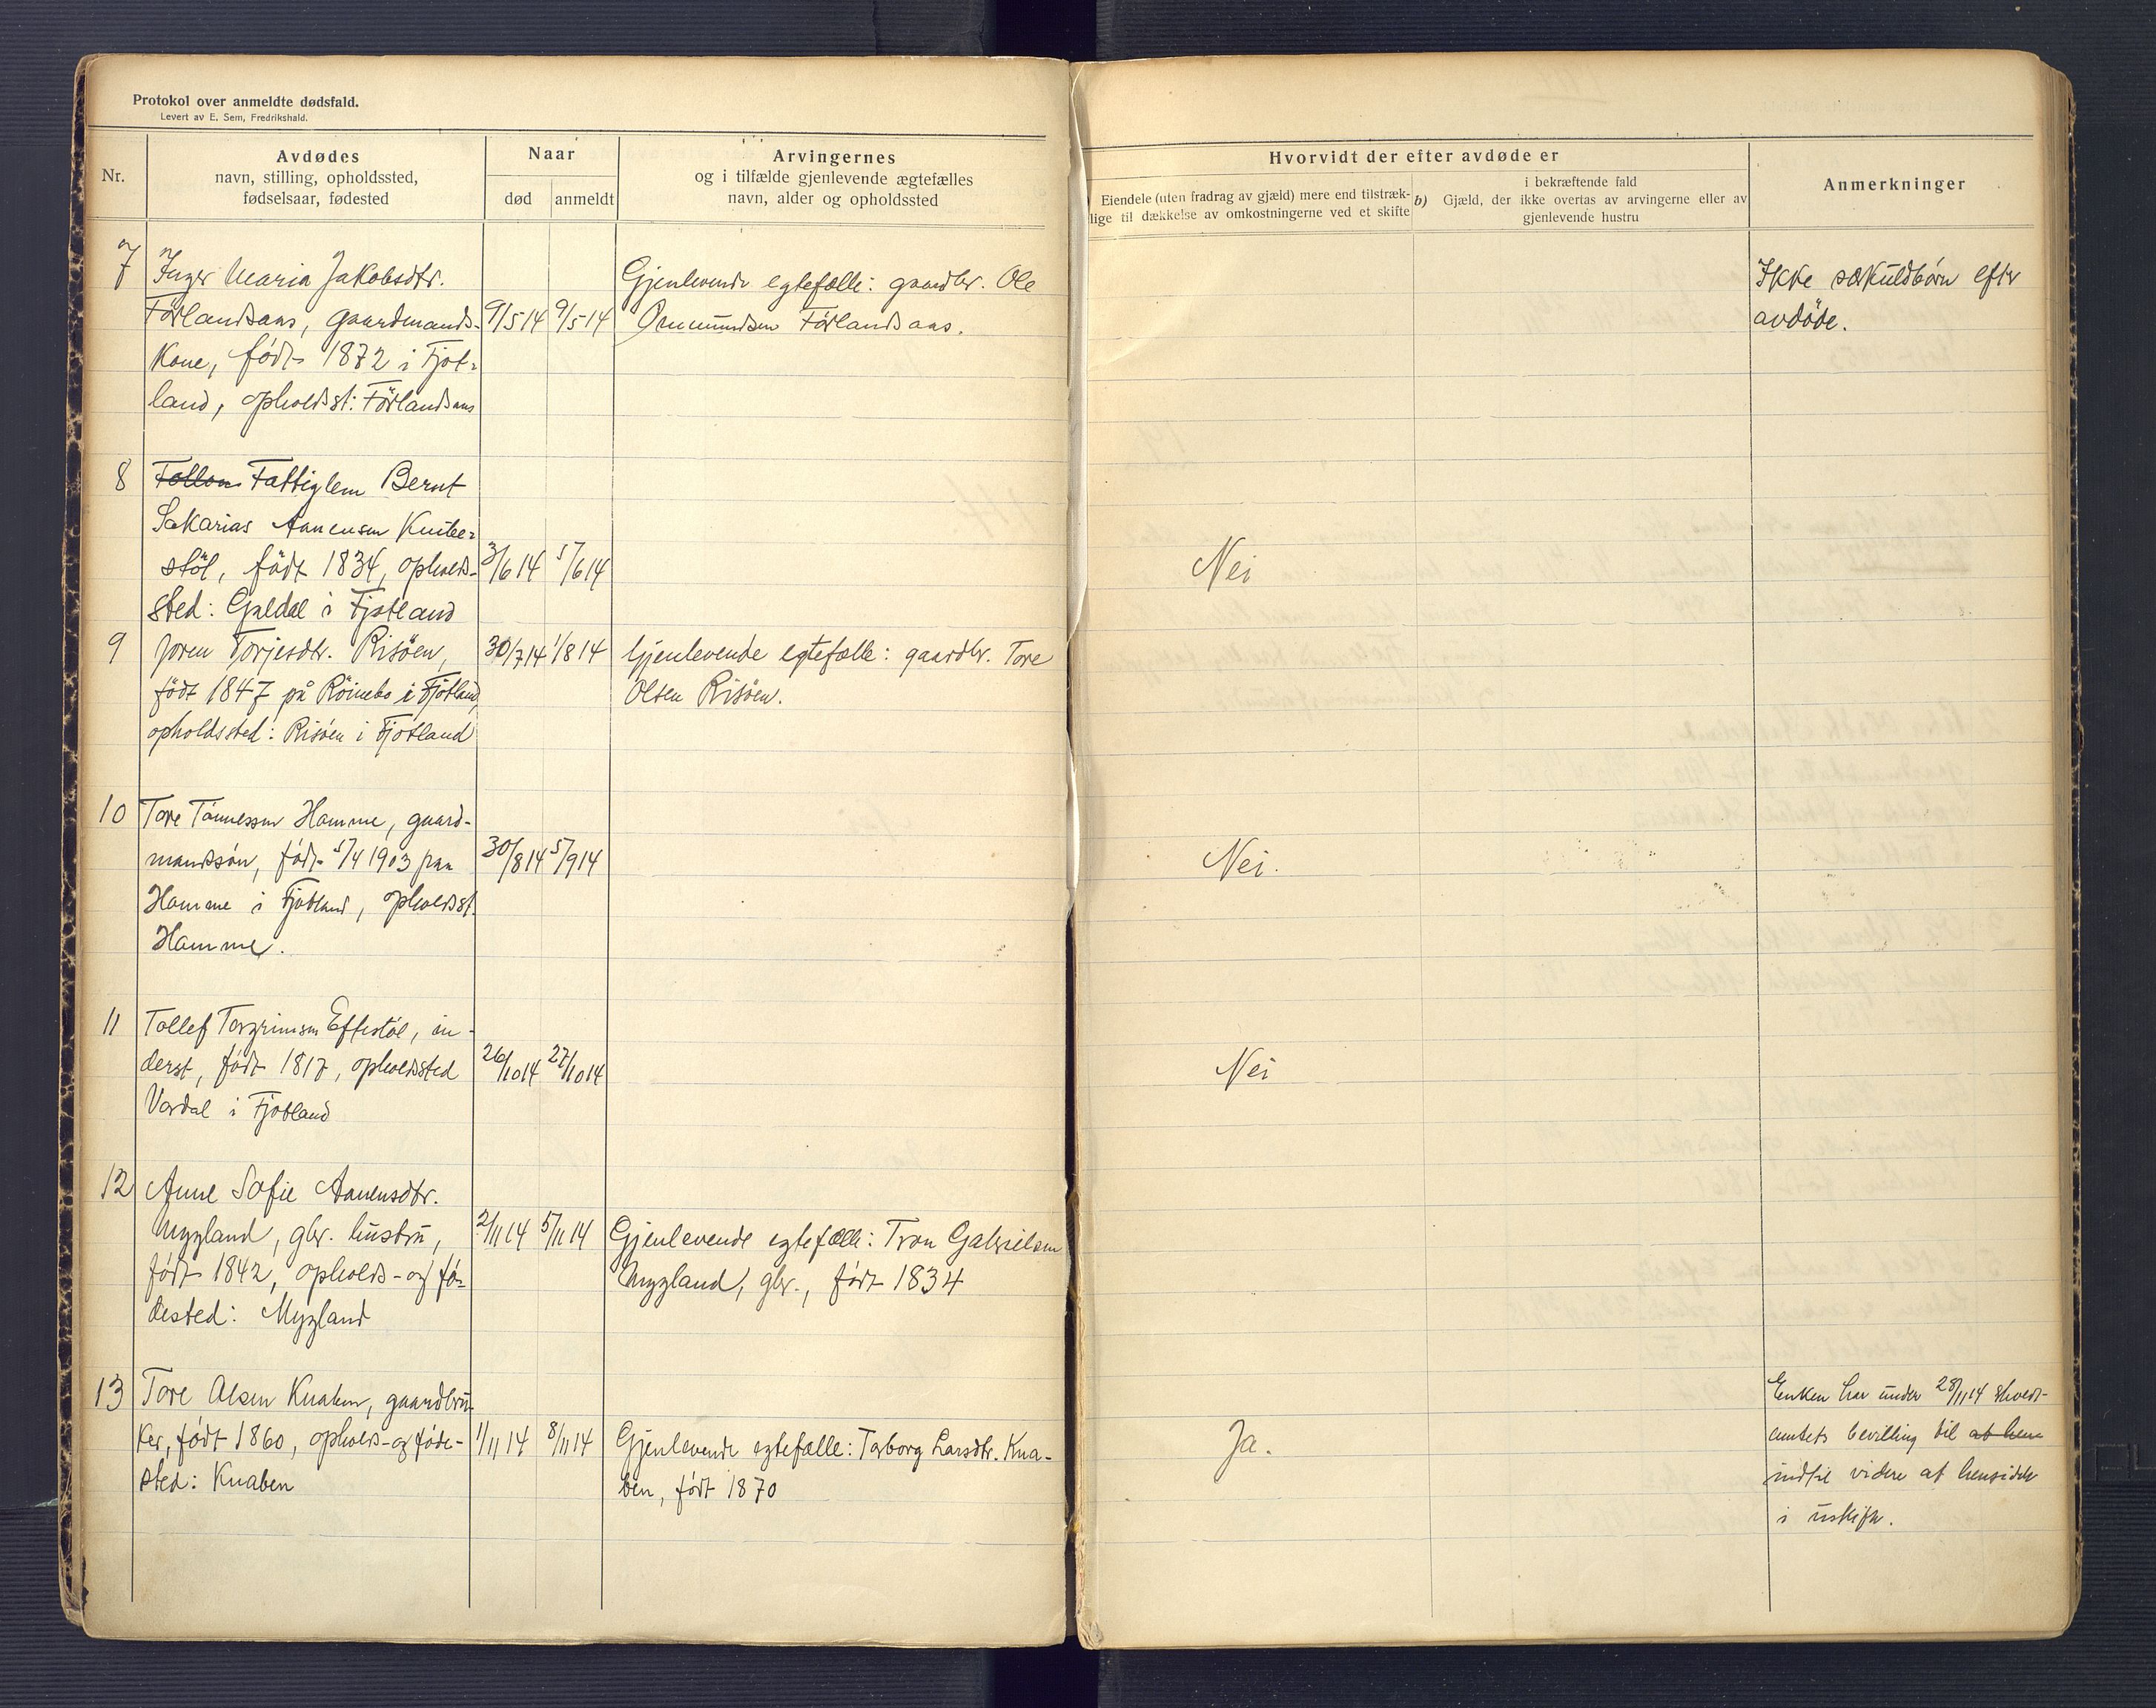 Protokol over anmeldte dødsfald.
Levert av E. Sem, Fredrikshald.
Nr.
Avdødes
navn, stilling, opholdssted,
fødselsaar, fødested
Naar
død
anmeldt
Arvingernes
og i tilfælde gjenlevende ægtefælles
navn, alder og opholdssted
Hvorvidt der efter avdøde er
Eiendele (uten fradrag av gjæld) mere end tilstræk-
lige til dækkelse av omkostningerne ved et skifte
b)
i bekræftende fald
Gjæld, der ikke overtas av arvingerne eller av
gjenlevende hustru
Anmerkninger
7
Inger Maria Jakobsdtr.
Förlandsaas, gaardmands-
kone, født 1872 i Fjot-
land, opholdsst: Förlandsaas
9/5 14
9/5 14
Gjenlevende egtefælle: gaardbr. Ole
Ommundsen Förlandsaas.
Ikke særkuldbörn efter
avdöde.
8
Fattiglem Bernt
Sakarias Aanensen Knibe-
stöl, födt 1834, opholds-
sted: Gjeldal i Fjotland
3/6 14
5/6 14
Nei
9
Joren Torjesdtr. Risöen,
födt 1847 på Röinebo i Fjotland,
opholdssted: Risöen i Fjotland
30/7 14
1/8 14
Gjenlevende egtefælle: gaardbr. Tore
Olsen Risöen.
10
Tore Tönnessen Homme, gaard-
mandssön, födt 5/4 1903 paa
Homme i Fjotland, opholdsst.
Homme.
30/8 14
5/9 14
Nei.
11
Tollef Torgrimsen Eftestöl, in-
derst, födt 1817, opholdssted
Vordal i Fjotland
26/10 14
27/10 14
Nei
12
Anne Sofie Aanensdtr.
Mygland, gbr. hustru,
födt 1842, opholds- og fö-
dested: Mygland
2/11 14
5/11 14
Gjenlevende egtefælle: Tron Gabrielsen
Mygland, gbr., födt 1834
13
Tore Olsen Knaben, gaardbru-
ker, födt 1860, opholds- og föde-
sted: Knaben
1/11 14
8/11 14
Gjenlevende egtefælle: Torborg Larsdtr. Kna-
ben, födt 1870
Ja.
Enken har under 28/11 14
bevilling til at hen
indtil videre at hensidde
i uskifte.